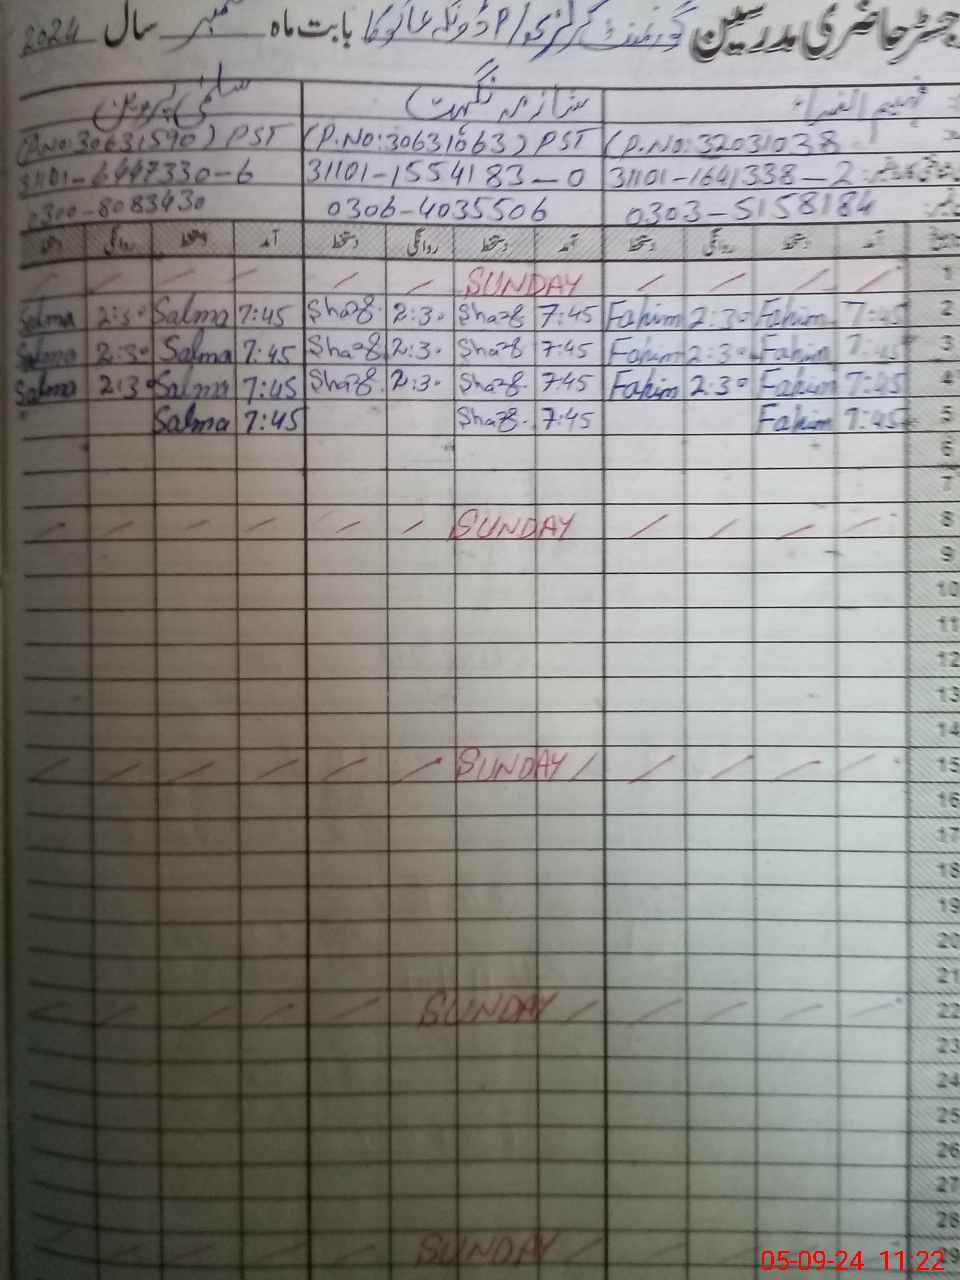 رجسٹر حاضری مدرسین گورنمنٹ گرلز بابت ماہ ستمبر سال 2024
فہیم النساء شازیہ نگہت سلمیٰ پروین
(P.No:32031038 (P.No:30631063) PST (P.No:30631590) PST
31101-1641338-2 31101-1554183-0 31101-6447330-6
0303-5158184 0306-4035506 0300-8083430
تاریخ آمد دستخط روانگی دستخط آمد دستخط روانگی دستخط آمد دستخط روانگی دستخط
1 SUNDAY
2 7:45 Fahim 2:30 Fahim 7:45 Shaz 2:30 Shaz 7:45 Salma 2:30 Salma
3 7:45 Fahim 2:30 Fahim 7:45 Shaz 2:30 Shaz 7:45 Salma 2:30 Salma
4 7:45 Fahim 2:30 Fahim 7:45 Shaz 2:30 Shaz 7:45 Salma 2:30 Salma
5 7:45 Fahim 7:45 Shaz 7:45 Salma
6
7
8 SUNDAY
9
10
11
12
13
14
15 SUNDAY
16
17
18
19
20
21
22 SUNDAY
23
24
25
26
27
28
SUNDAY
05-09-24 11:22